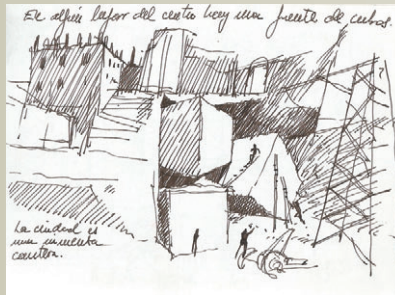 En algún lugar del centro hay una fuente de cubos.
La ciudad es
una inmensa
cantera.